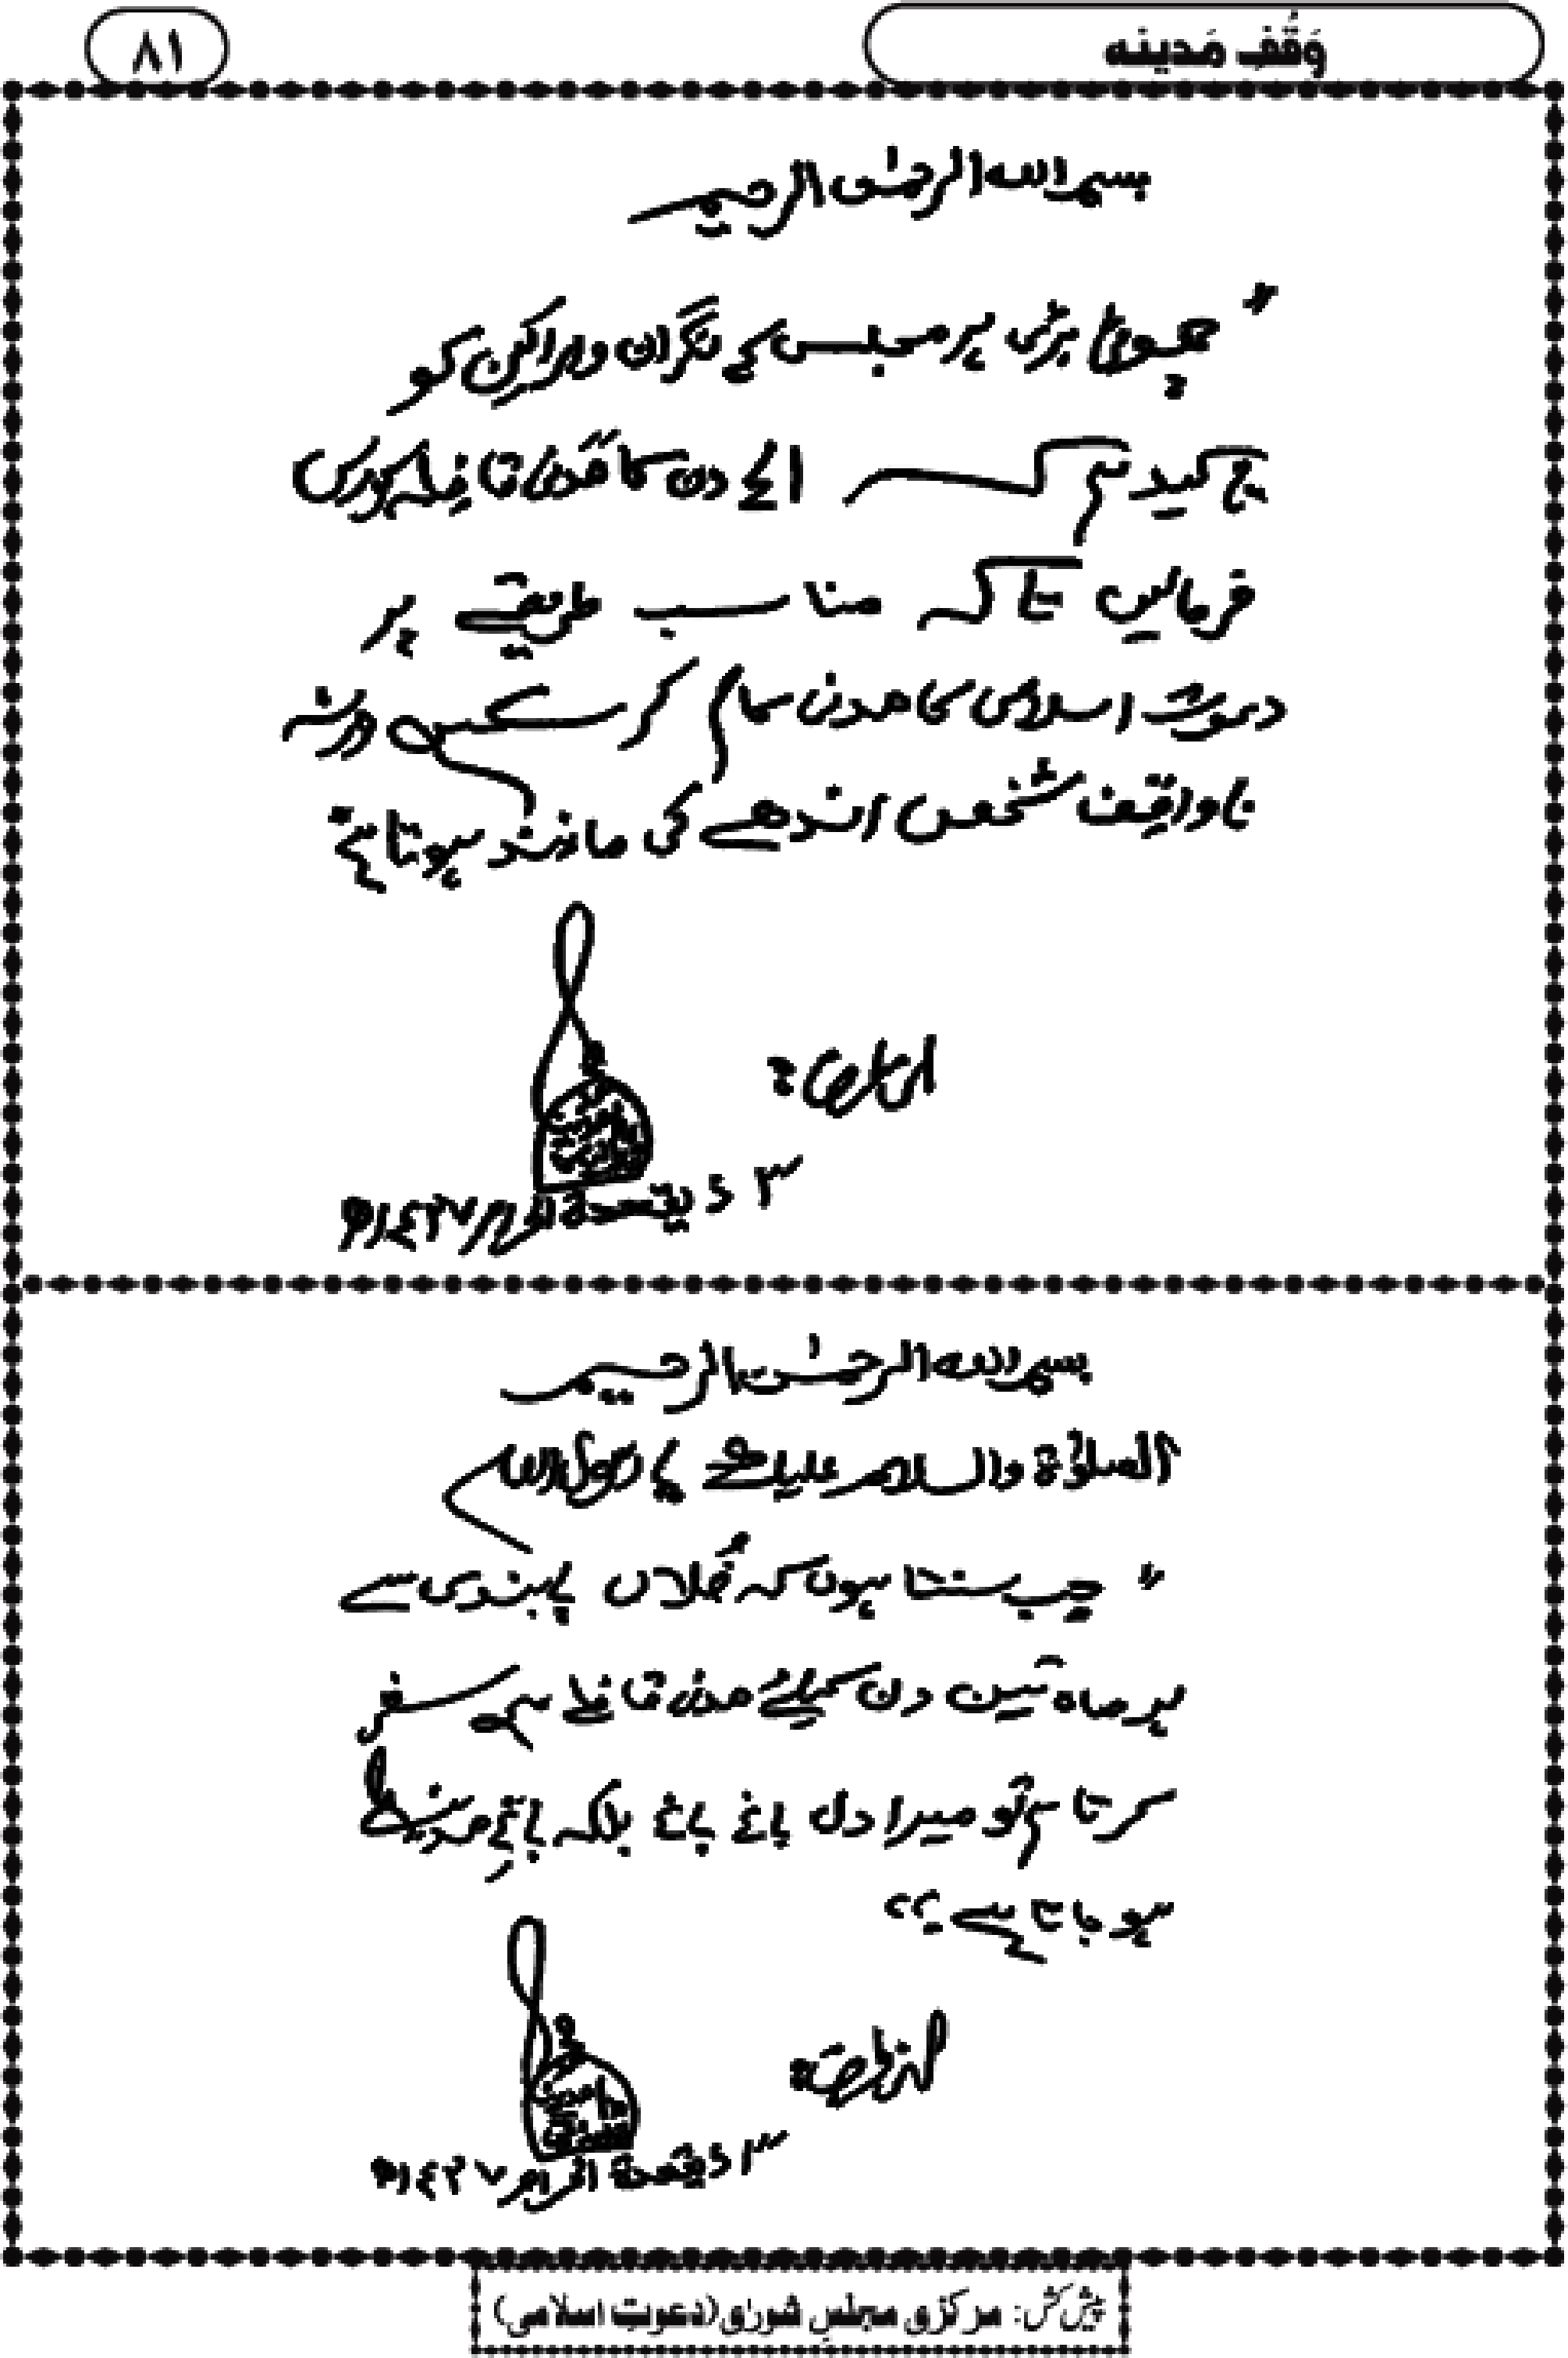 وَقْفِ مَدینہ
۸۱
بسم اللہ الرحمٰن الرحیم
"چھوٹی بڑی ہر مجلس کے نگران و اراکین کو
تاکید ہے کہ ٤١ دن کا مَدَنی قافِلہ کورس
فرمالیں تاکہ مناسب طریقے پر
دعوتِ اسلامی کا مدنی کام کر سکیں ورنہ
ناواقِف شخص اندھے کی مانند ہوتا ہے"
٣ ذیقعدۃ الحرام ١٤٢٧ھ
بسم اللہ الرحمٰن الرحیم
الصلوٰۃ والسلام علیک یا رسول اللہ
"جب سنتا ہوں کہ فُلاں پابندی سے
ہر ماہ تین دن کیلئے مدنی قافلے میں سفر
کرتا ہے تو میرا دل باغ باغ بلکہ باغِ مدینہ
ہو جاتا ہے۔"
٣ ذیقعدۃ الحرام ١٤٢٧ھ
پیش کش: مرکزی مجلسِ شورٰی (دعوتِ اسلامی)